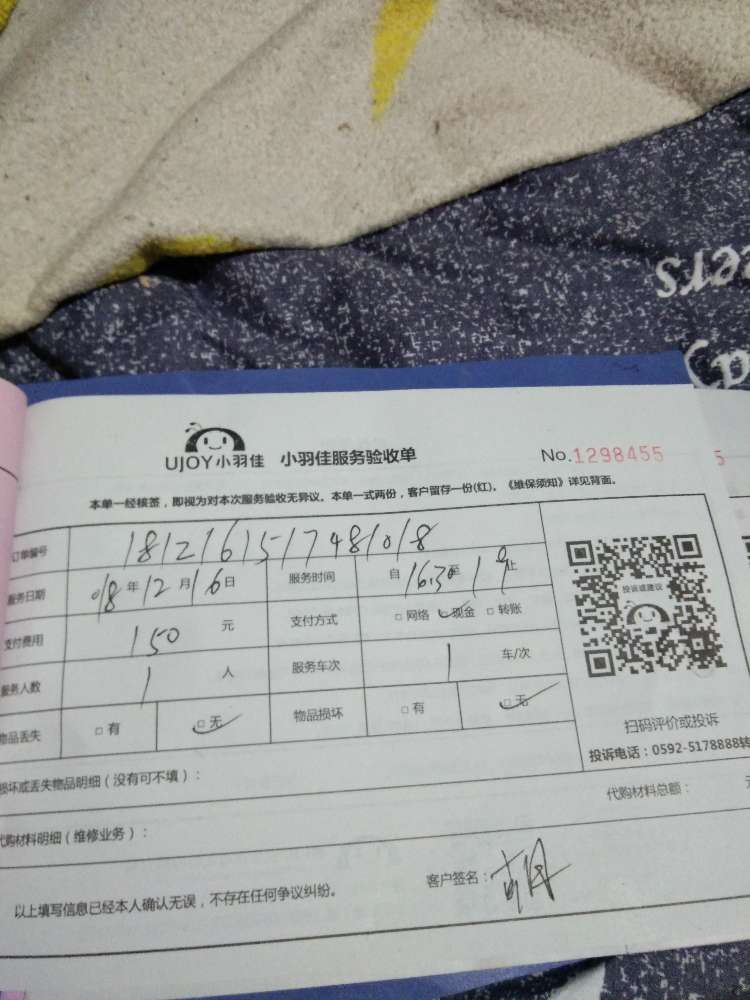 eers
UJOY小羽佳 小羽佳服务验收单 No.1298455
本单一经核签，即视为对本次服务验收无异议。本单一式两份，客户留存一份(红)。《维保须知》详见背面。
订单编号 1812161517481018
服务日期 018年12月16日 服务时间 自16:30至19止
支付费用 150元 支付方式 □网络 □现金 □转账
服务人数 1人 服务车次 1车/次
物品丢失 □有 □无 物品损坏 □有 □无
投诉或建议
扫码评价或投诉
投诉电话：0592-5178888转
损坏或丢失物品明细（没有可不填）：
代购材料明细（维修业务）： 代购材料总额： 元
以上填写信息已经本人确认无误，不存在任何争议纠纷。 客户签名：胡